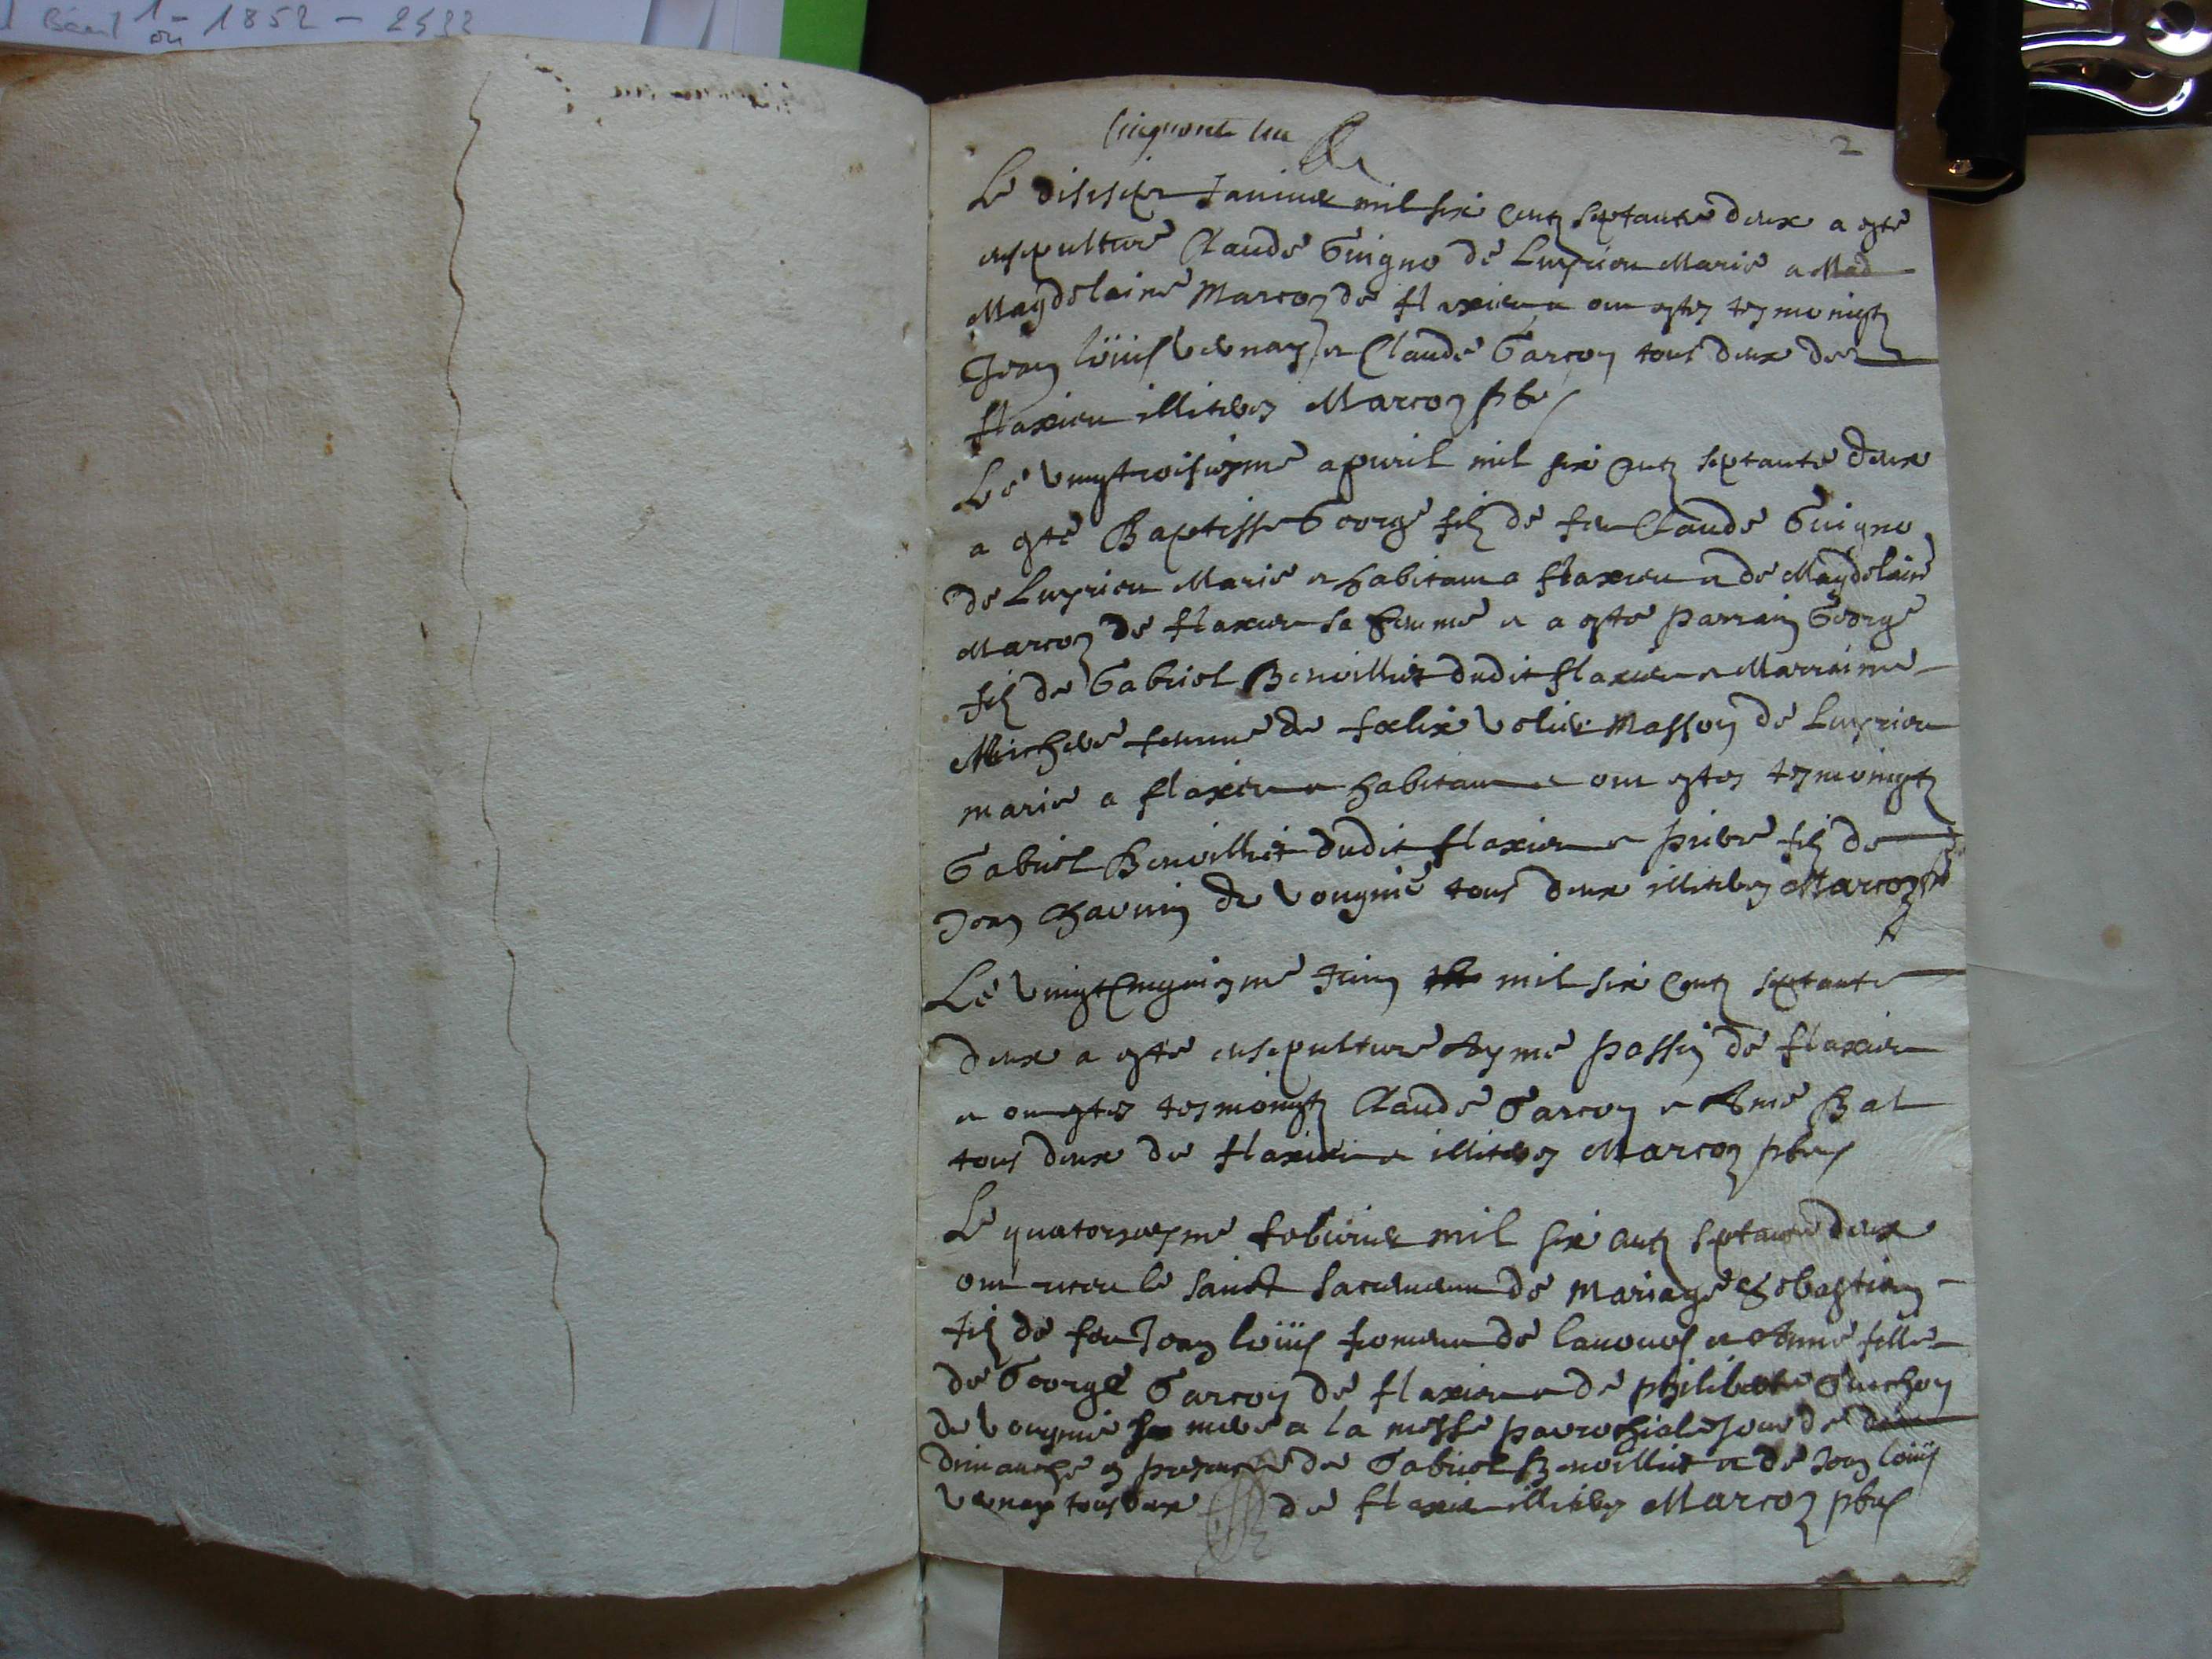 1 - 1852 - 2532
ou
Cinquante un
2
Le diseseptr Januier mil six centz septante deux a esté
ensepulturé Claude Guigno de Luyrieu Marié a Mad
Magdelaine Marcoz de flaxieu e ont estes tesmoingtz
Jean loüis Vernay e Claude Garcon tous deux de
flaxieu illiteres Marcoz pbr
Le vingttroisiesme apuril mil six centz septante deux
a esté Baptissé George filz de feu Claude Guigno
de Luyrieu Marié e habitant a flaxieu e de Magdelaine
Marcoz de flaxieu sa femme e a esté parrain George
filz de Gabriel Benvillict dudit flaxieu e Marraine
Michere femme de foelix Velier Masson de Luyrieu
marié a flaxieu e habitant e ont estes tesmoingtz
Gabriel Benvillict dudit flaxieu e pierre filz de
Jean Charvin de Vongnie tous deux illiteres Marcoz pbr
Le vingtcinquiesme Juin mil six centz septante
deux a esté ensepulturé Ayme passin de flaxieu
e ont estes tesmoingtz Claude Garcon e Ame Bal
tous deux de flaxieu e illiteres Marcoz pbr
Le quatorziesme febvrier mil six centz septante deux
ont receu le sainct Sacrement de Mariage Sebastien
filz de feu Jean loüis froment de lavours e Anne fille
de George Garcon de flaxieu e de philiberte Guichon
de Vongnie sa mere a la messe parrochiale Jour de
dimanche en presence de Gabriel Benvillict e de Jean loüis
Vernay tous deux de flaxieu illiteres Marcoz pbr